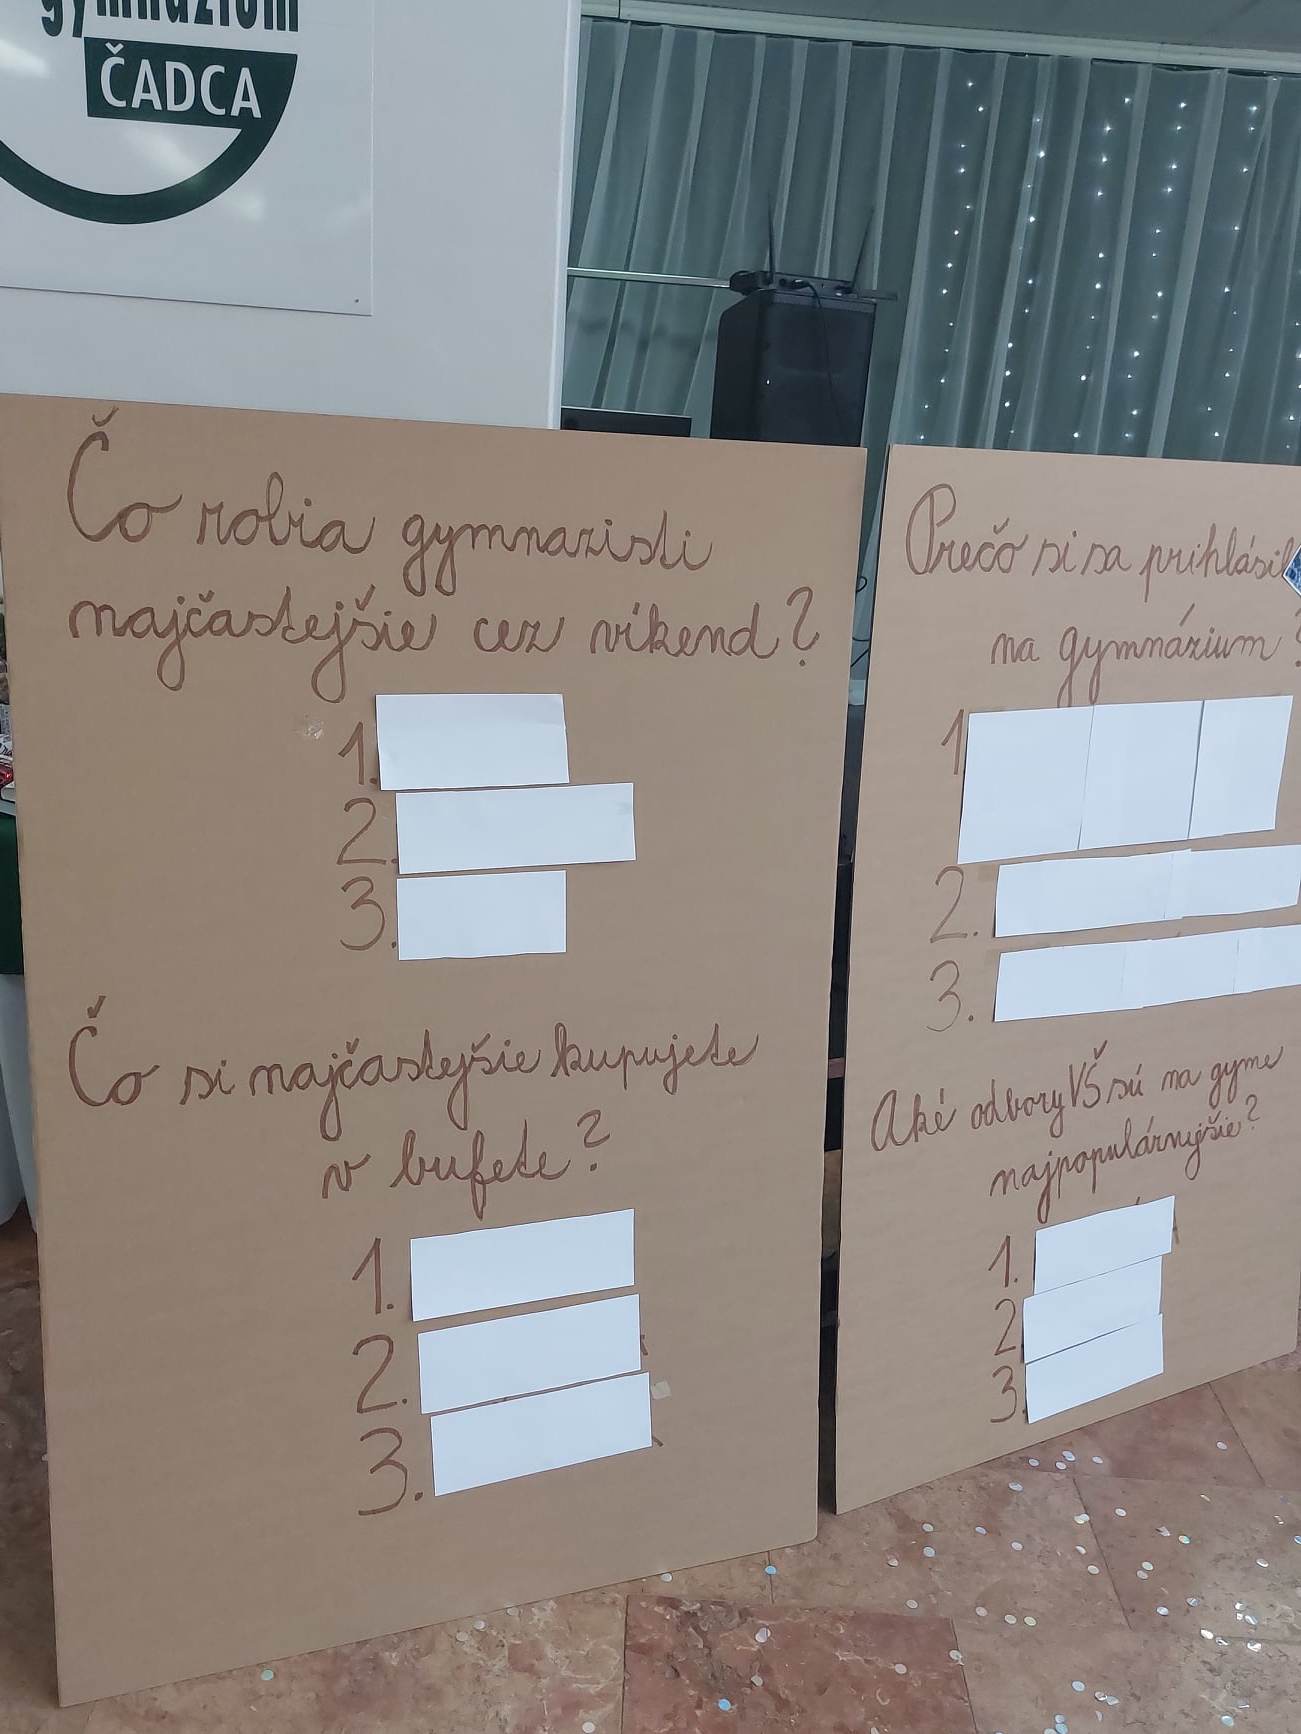 gymnázium
ČADCA
Čo robia gymnazisti
najčastejšie cez víkend?
1.
2.
3.
Čo si najčastejšie kupujete
v bufete?
1.
2.
3.
Prečo si sa prihlásil
na gymnázium?
1
2.
3.
Aké odbory VŠ sú na gyme
najpopulárnejšie?
1.
2.
3.